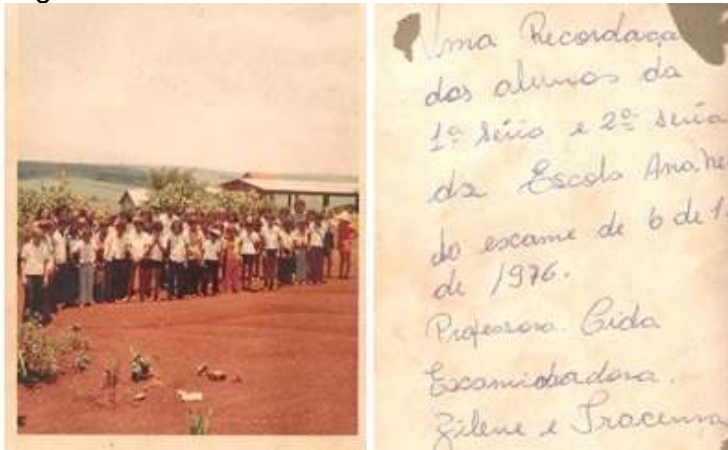 Uma Recordaça
dos alunos da
1ª série e 2ª séria
da Escola Anahe
do escame de 6 de 1
de 1976.
Professora Cida
Escamidadora.
Zilene e Iracema